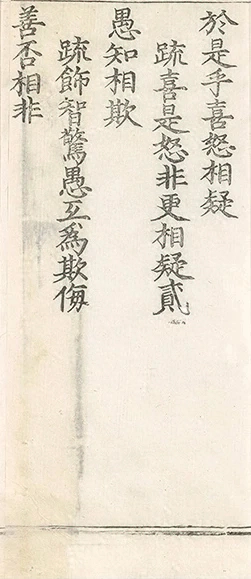 於是乎喜怒相疑
疏喜是怒非更相疑貳
愚知相欺
疏飾智驚愚互為欺侮
善否相非